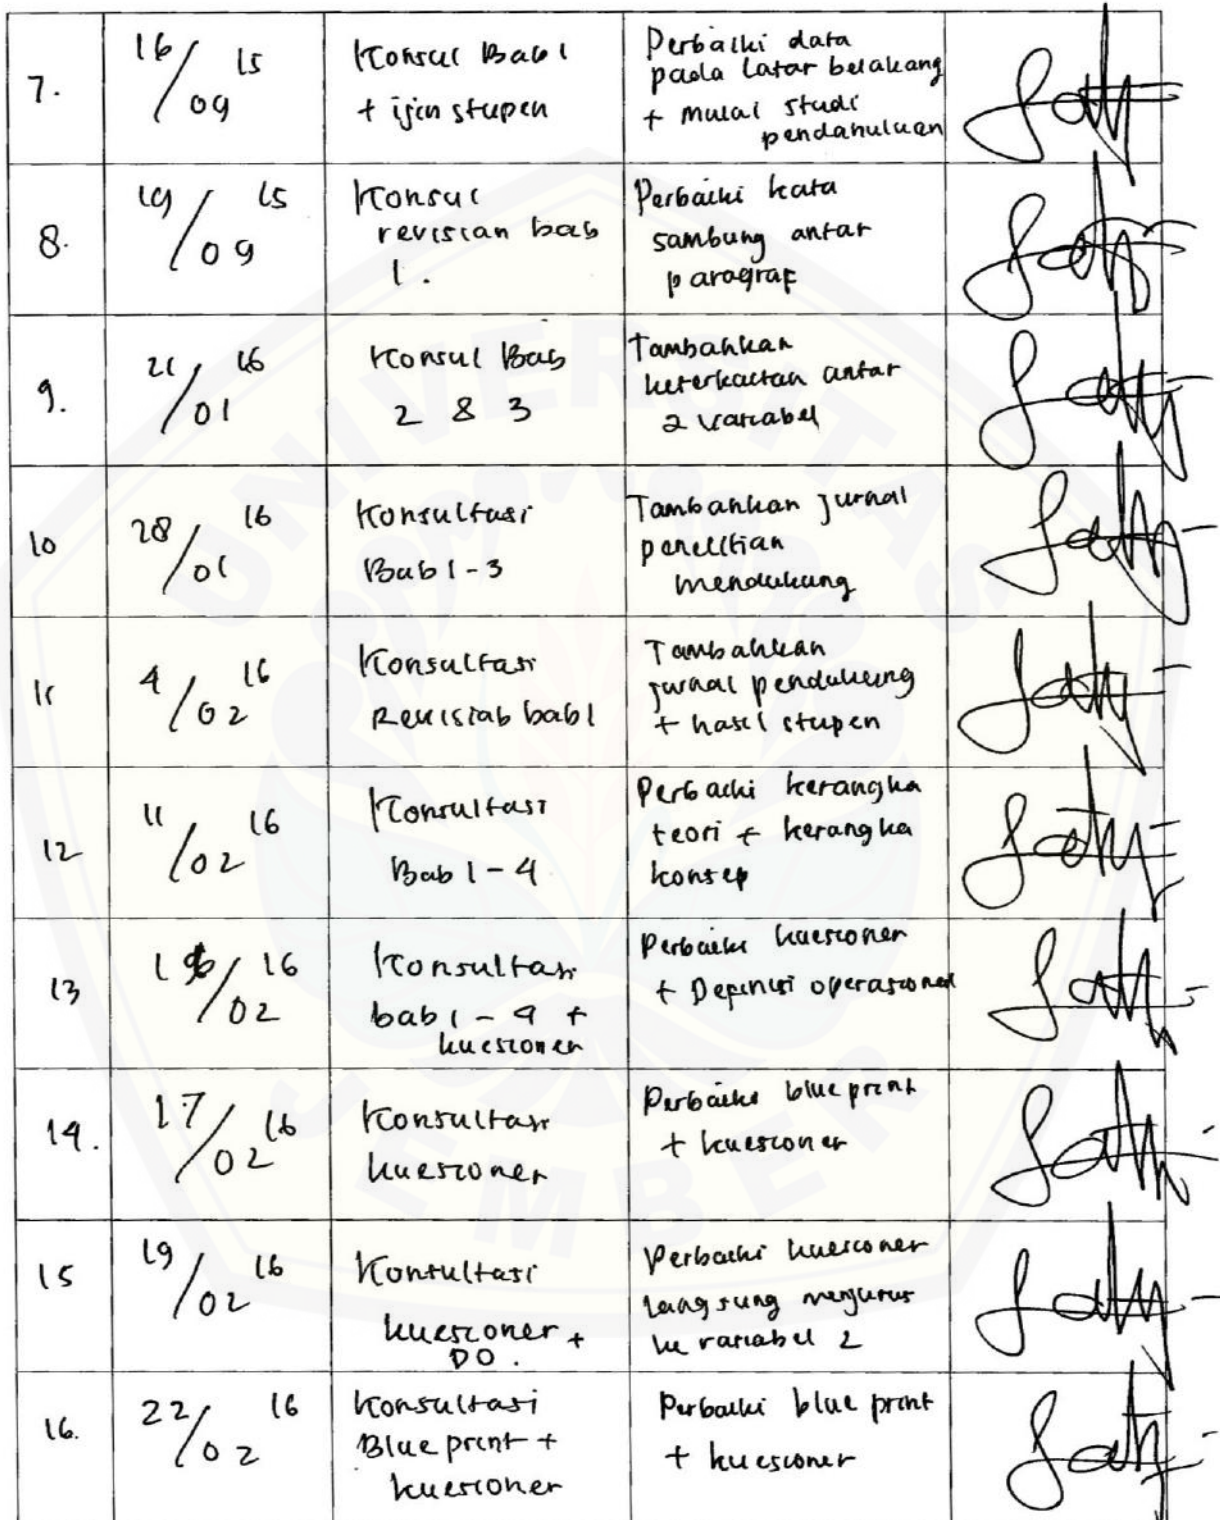 7.
16/09 15
Konsul Bab 1
+ ijin stupen
Perbaiki data
pada Latar belakang
+ mulai studi
pendahuluan
8.
19/09 15
Konsul
revisian bab
1.
Perbaiki kata
sambung antar
paragraf
9.
21/01 16
Konsul Bab
2 & 3
Tambahkan
keterkaitan antar
2 variabel
10
28/01 16
Konsultasi
Bab 1-3
Tambahkan jurnal
penelitian
mendukung
11
4/02 16
Konsultasi
Revisiab bab 1
Tambahkan
jurnal pendukung
+ hasil stupen
12
11/02 16
Konsultasi
Bab 1-4
Perbaiki kerangka
teori + kerangka
konsep
13
/02 16
Konsultasi
bab 1-4 +
kuesioner
Perbaiki kuesioner
+ Definisi operasional
14.
17/02 16
Konsultasi
kuesioner
Perbaiki blue print
+ kuesioner
15
19/02 16
Konsultasi
kuesioner +
DO.
Perbaiki kuesioner
langsung
ke variabel 2
16.
22/02 16
Konsultasi
Blue print +
kuesioner
Perbaiki blue print
+ kuesioner
UNIVERSITAS
JEMBER